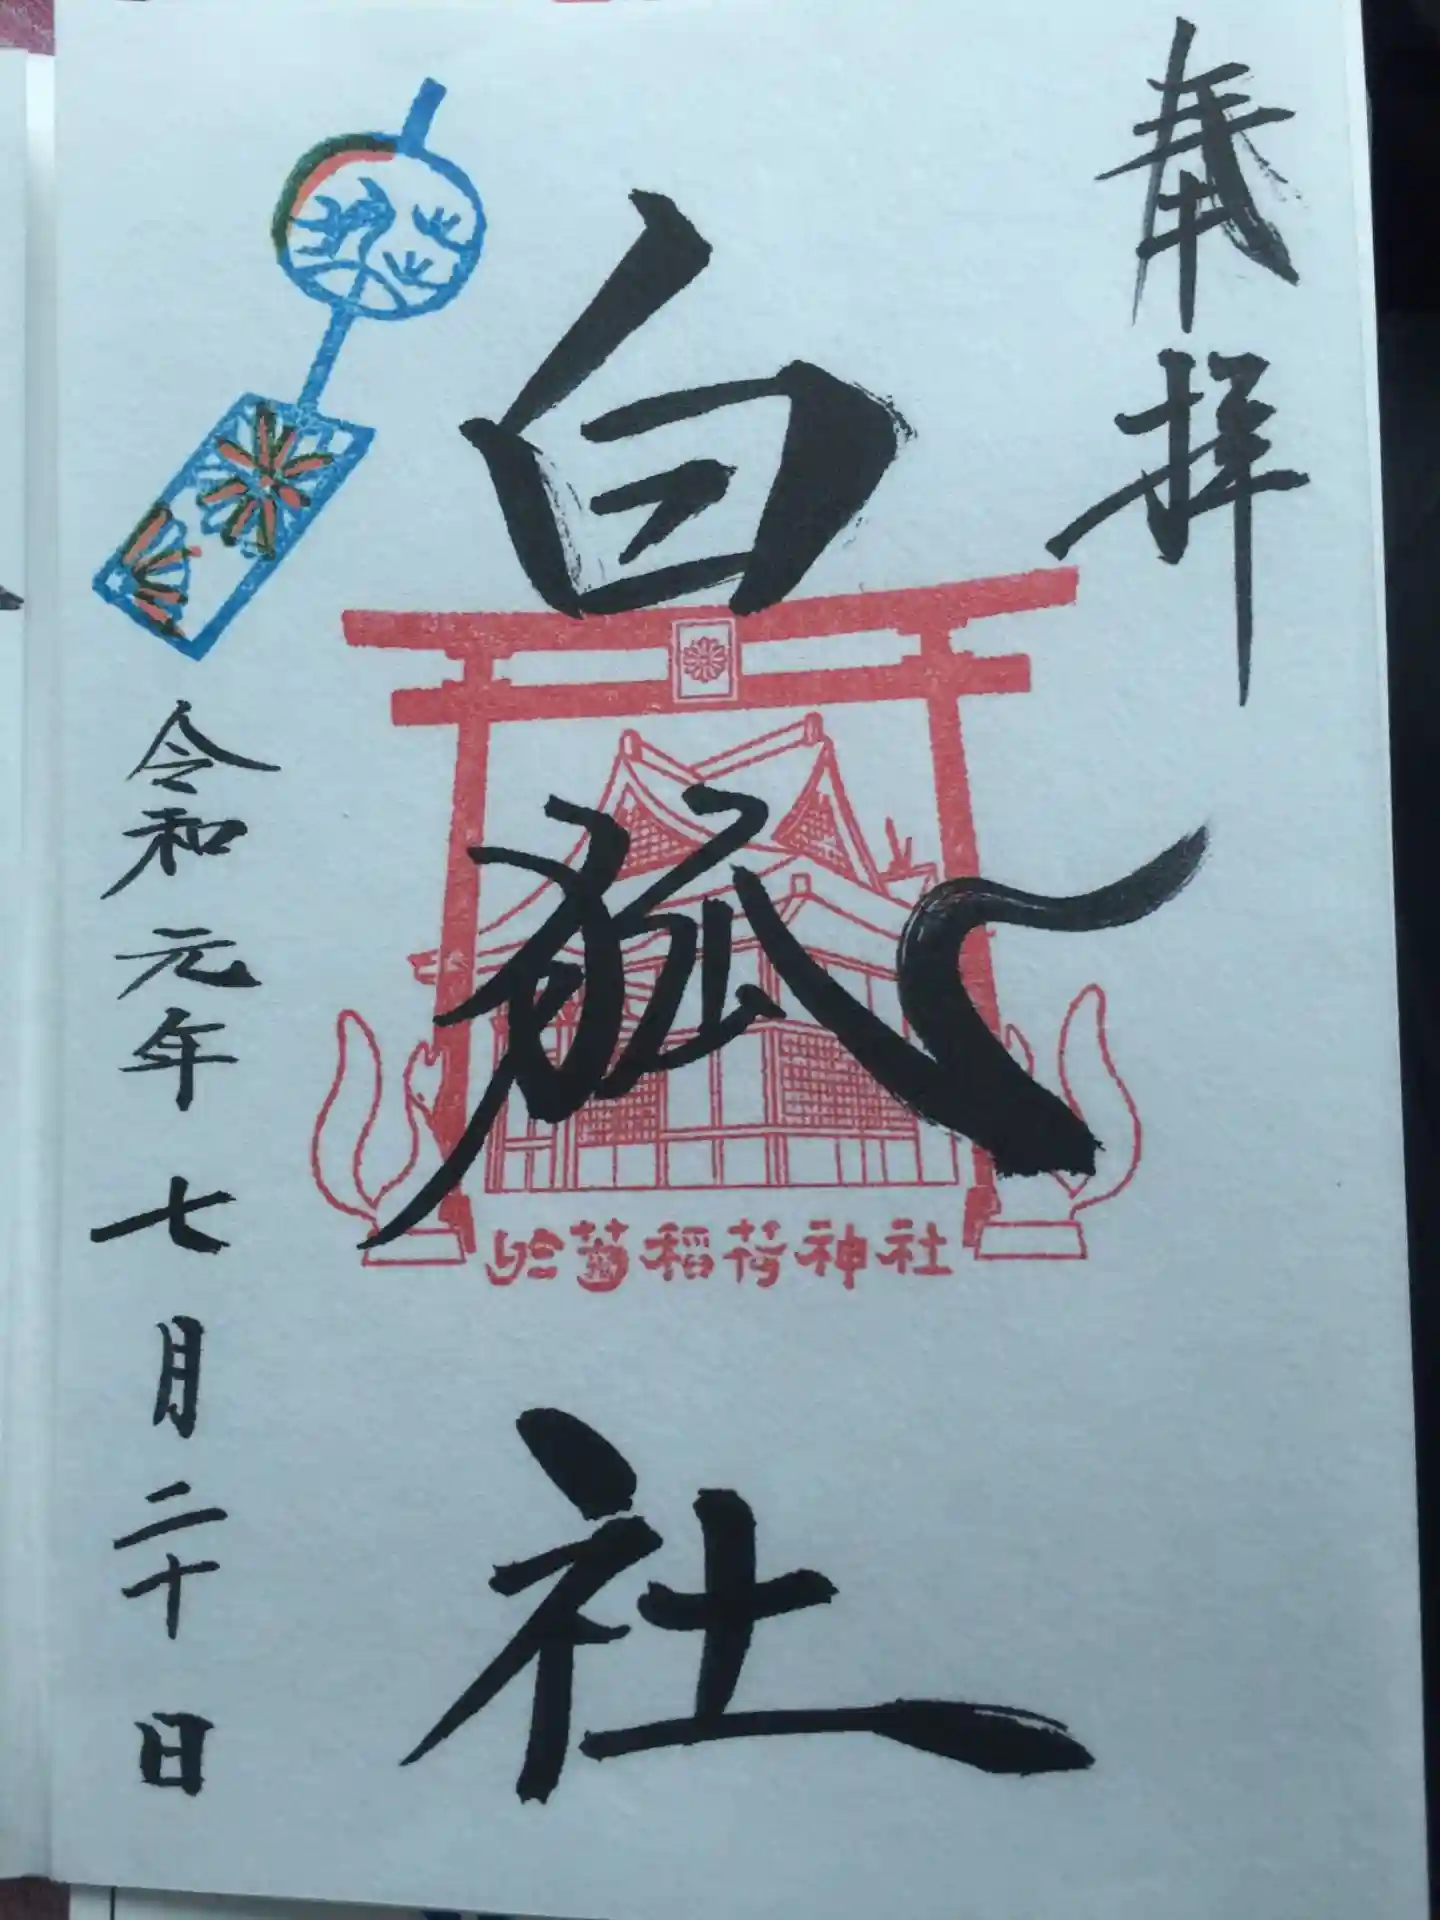 奉拝
白狐社
於菊稲荷神社
令和元年七月二十日